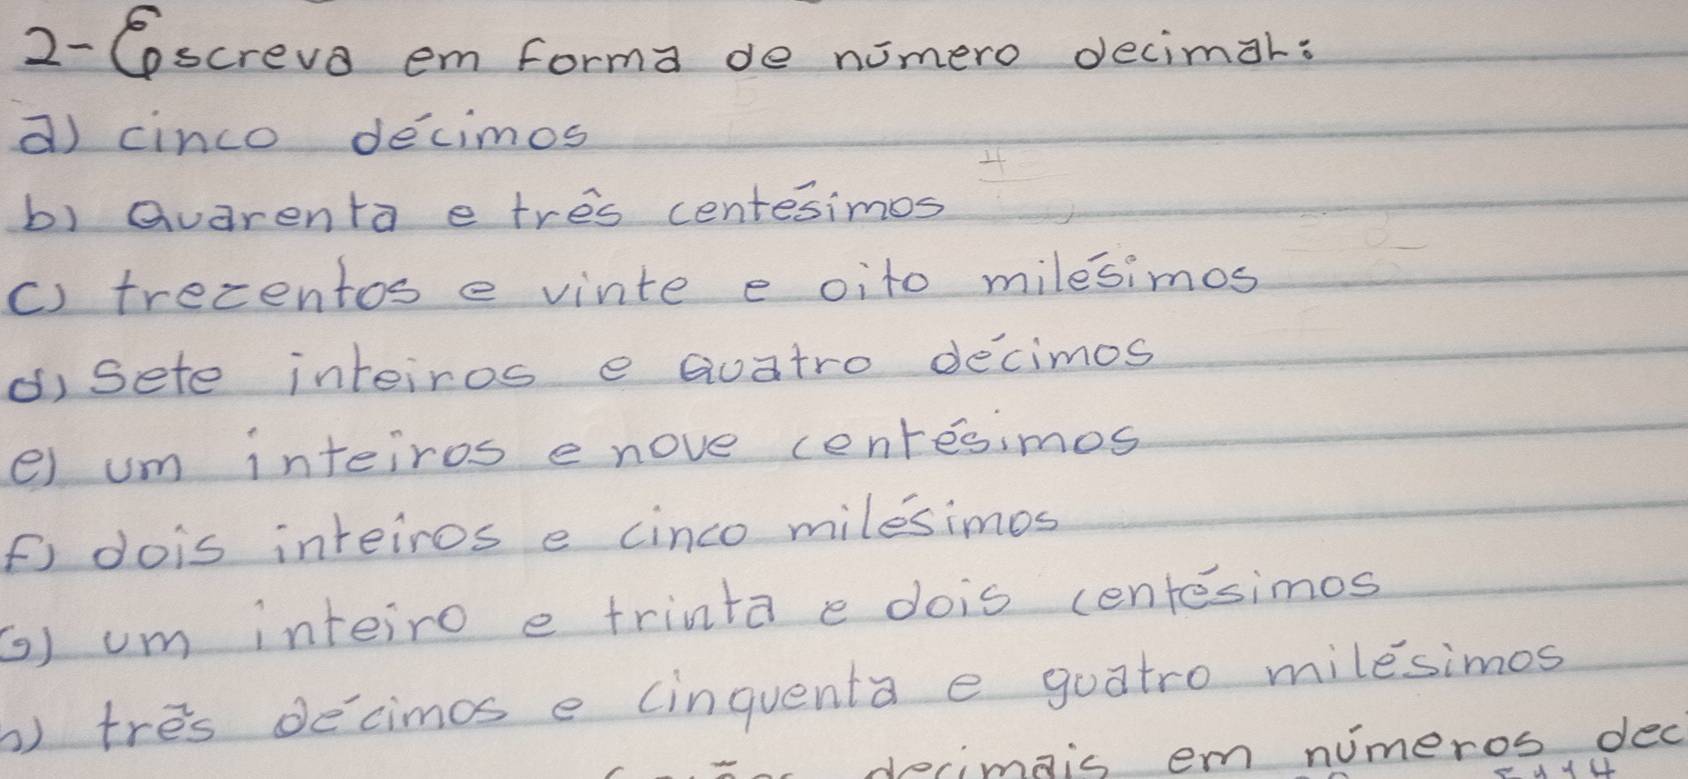 2- Escreva em forma de número decimal:
a) cinco décimos
b) Quarenta e três centésimos
c) trezentos e vinte e oito milésimos
d) Sete inteiros e Quatro décimos
e) um inteiros e nove centésimos
f) dois inteiros e cinco milésimos
G) um inteiro e trinta e dois centésimos
h) três décimos e cinquenta e quatro milésimos
decimais em números dec